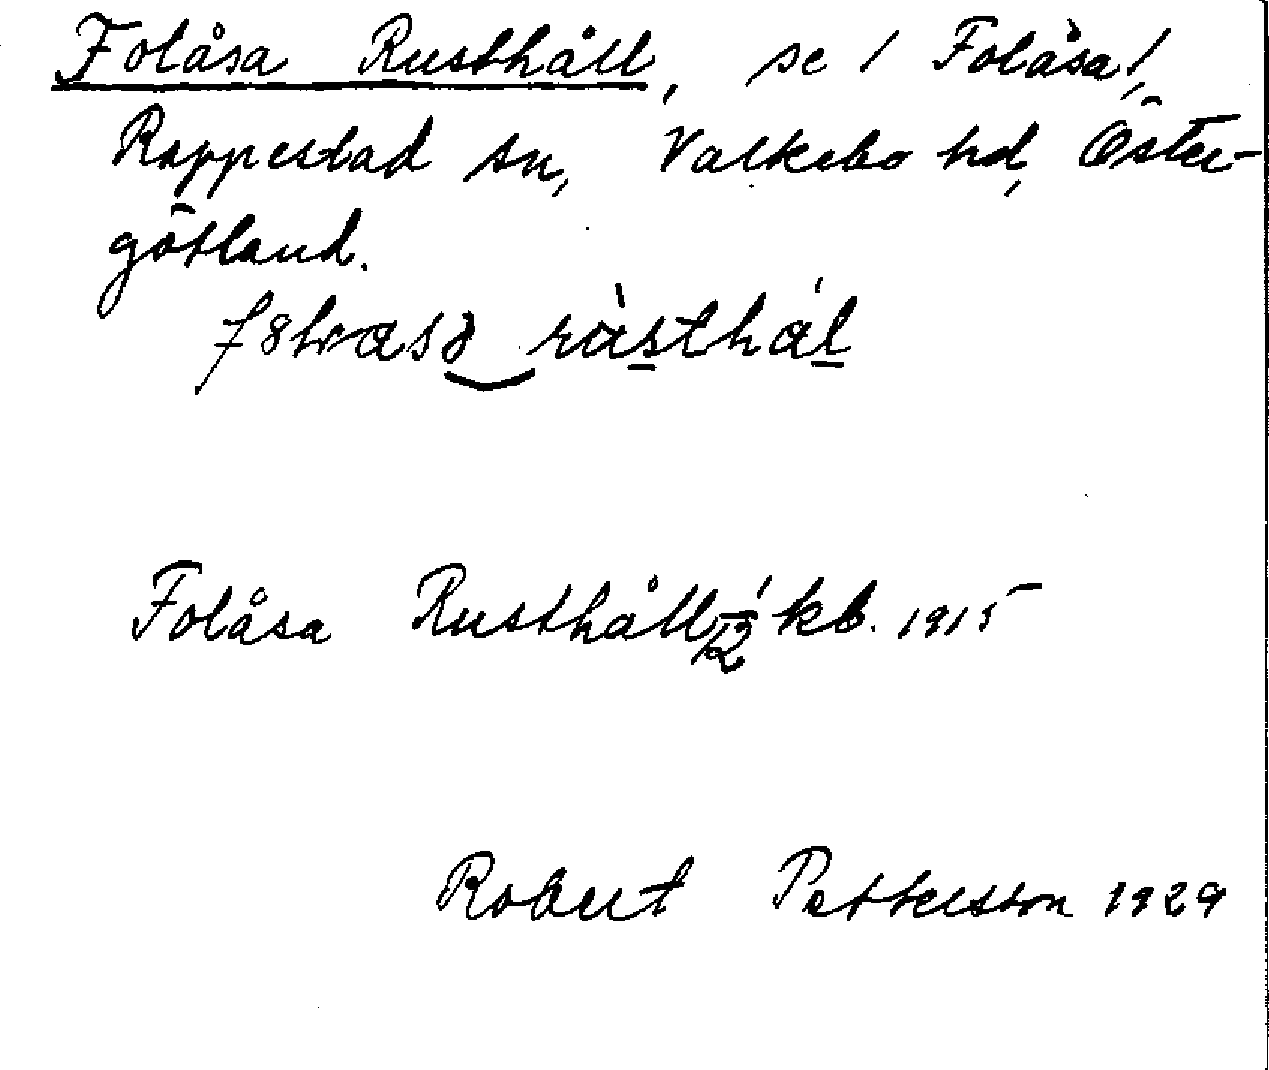 Folåsa Rusthåll, se / Folåsa/,
Rappestad sn, Valkebo hd, Öster-
götland.
Folåsa Rusthåll 1/2 kb. 1915
Robert Pettersson 1929